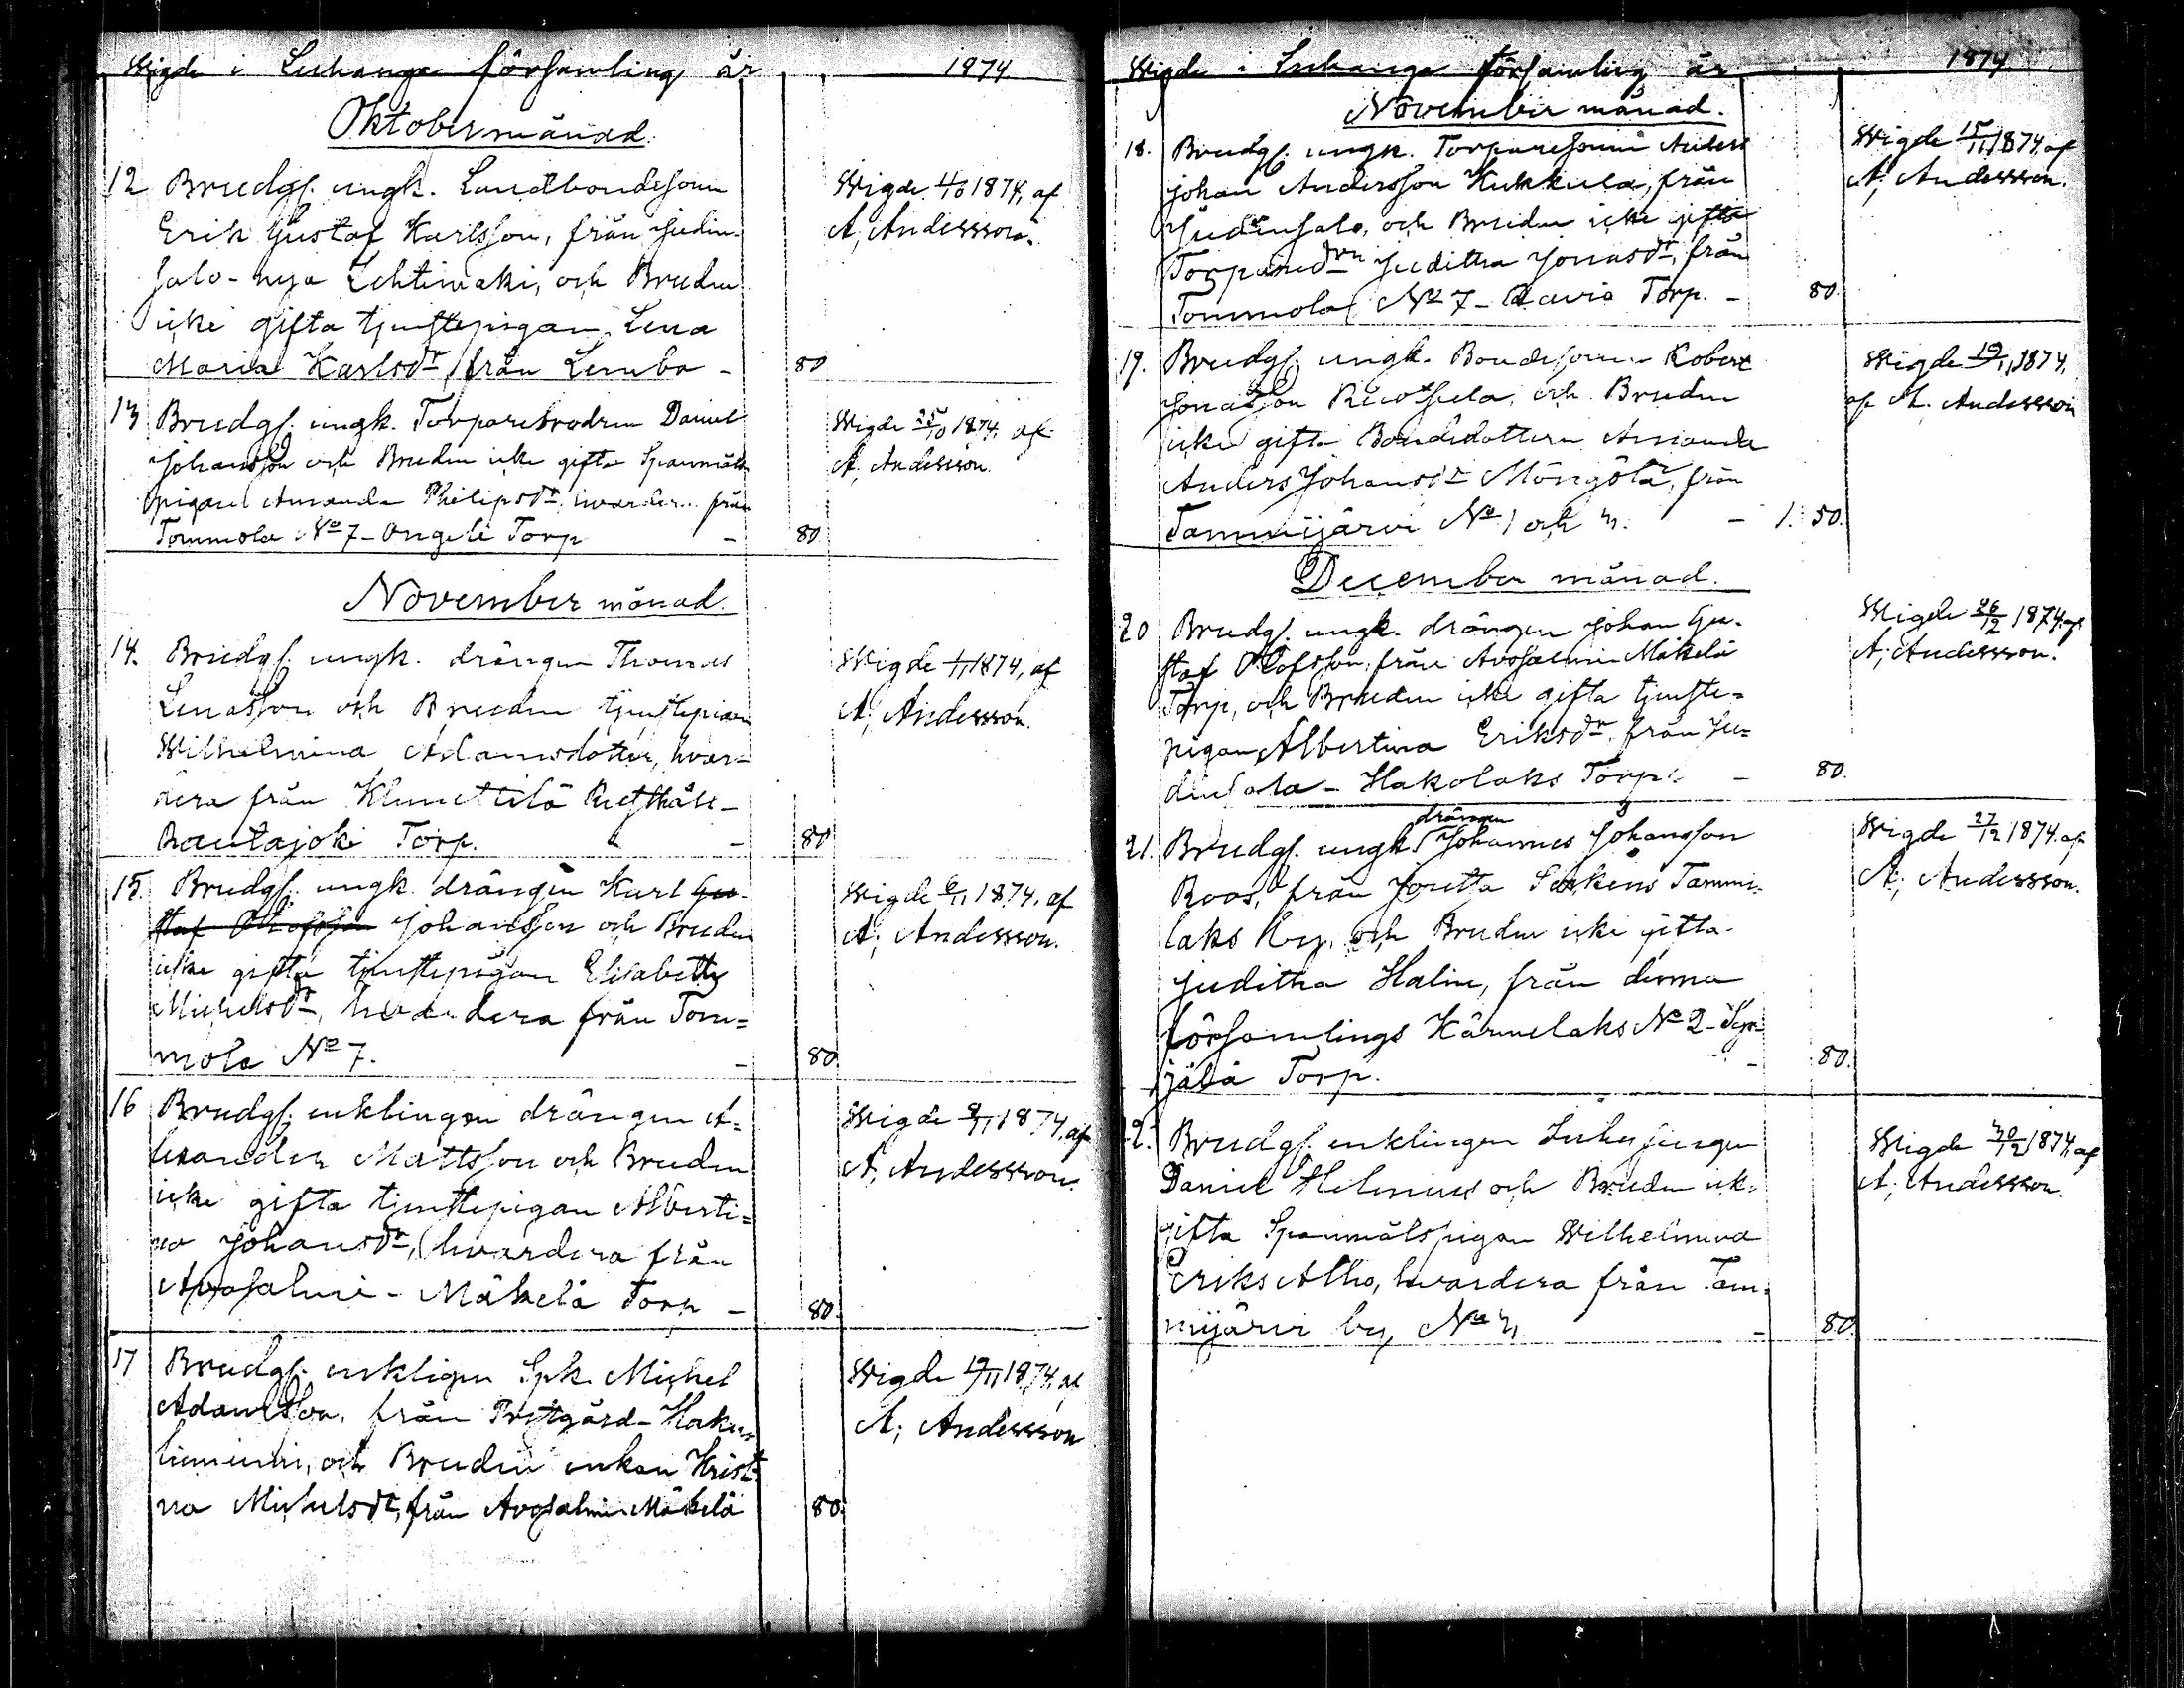 Wigde i Luhanga församling år 1874
Oktober månad.
12 Brudg. ungk. Landbondesonen
Erik Gustaf Karlsson, från Judin-
salo-nya Lehtimäki, och Bruden
icke gifta tjenstepigan Lena
Maria Karlsdr, från Lembo - 80
Wigde 4/10 1874, af
A. Andersson.
13 Brudg. ungk. Torparebrodren Daniel
Johansson och Bruden icke gifta Spanmåls
pigan Amanda Philipsdr, hvardera från
Tommola No 7- Torp - 80
Wigde 25/10 1874, af
A. Andersson.
November månad.
14. Brudg. ungk. drängen Thomas
Enasson och Bruden tjenstepigan
Wilhelmina Adamsdotter, hvar-
dera från Klemettilä Rusthåll-
Rautajoki Torp. - 80
Wigde 1/11 1874, af
A. Andersson.
15. Brudg. ungk. drängen Karl Gu-
staf Olofsson Johansson och Bruden
icke gifta tjenstepigan Elisabeth
Michelsdr, hvardera från Tom=
mola No 7. - 80.
Wigde 6/11 1874, af
A. Andersson.
16 Brudg. enklingen drängen A=
lexander Mattsson och Bruden
icke gifta tjenstepigan Alberti=
na Johansdr, hvardera från
Avosalmi - Mäkelä Torp - 80.
Wigde 8/11 1874, af
A. Andersson.
17 Brudg. enklingen Spk. Michel
Adamsson, från Prestgård-Haku-
och Bruden enkan Kristi
na Michelsdr, från Avosalmi Mäkelä 80.
Wigde 19/11 1874, af
A. Andersson
Wigde i Luhanga församling år 1874
November månad.
18. Brudg. ungk. Torparesonen Anders
Johan Andersson Kukkula, från
Judinsalo, och Bruden icke gifta
Torparedrn Juditha Jonasdr, från
Tommola No 7- Torp. - 80.
Wigde 15/11 1874, af
A. Andersson.
19. Brudg. ungk. Bondesonen Robert
Jonasson och Bruden
icke gifta Bondedottern Amanda
Anders Johansdr från
Tammijärvi No 1 och 3. - 1. 50.
Wigde 19/11 1874,
af A. Andersson
December månad.
20 Brudg. ungk. drängen Johan Gu-
staf Olofsson, från Avosalmi Mäkelä
Torp, och Bruden icke gifta tjenste=
pigan Albertina Eriksdr, från Ju=
dinsala - Hakolaks Torp - 80.
Wigde 26/12 1874, af
A. Andersson.
21. Brudg. ungk. drängen Johannes Johansson
Roos, från Joutsa Tammi-
laks by, och Bruden icke gifta
Juditha Halin, från denna
församlings Kärmelaks No 2-
jälä Torp. - 80.
Wigde 27/12 1874, af
A. Andersson.
2. Brudg. enklingen
Daniel Helenius och Bruden ick.
gifta Spanmålspigan Wilhelmina
Eriks Alho, hvardera från Tam-
mijärvi by No 3 - 80.
Wigde 30/12 1874, af
A. Andersson.